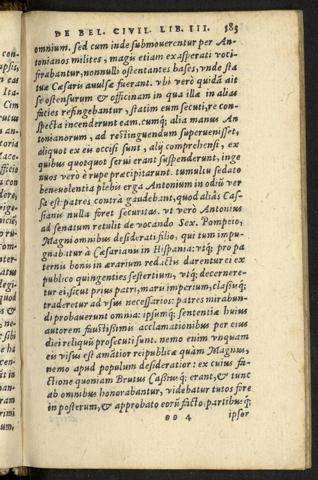 DE BEL. CIVIL. LIB. III. 583
omnium. sed cum inde submouerentur per An-
tonianos milites, magis etiam exasperati voci-
ferabantur, nonnulli ostentantes bases, vnde sta
tuæ Cæsaris auulsæ fuerant. vbi verò quidā ait
se ostensurum & officinam in qua illæ in alias
facies refingebantur, statim eum secuti, re con-
specta incenderunt eam. cumq; alia manus An
tonianorum, ad restinguendum superuenisset,
aliquot ex eis occisi sunt, alij comprehensi, ex
quibus quotquot serui erant suspenderunt, inge
nuos verò è rupe præcipitarunt. tumulu sedato
beneuolentia plebis erga Antonium in odiū ver
sa est: patres contrà gaudebant, quod aliâs Cas-
siani nulla foret securitas. vt verò Antonius
ad senatum retulit de vocando Sex. Pompeio,
Magni omnibus desiderati filio, qui tum impu-
gnabatur à Cæsarianis in Hispania: vtq; pro pa
ternis bonis in ærarium redactis darentur ei ex
publico quingenties sestertium, vtq; decernere-
tur ei, sicut prius patri, maris imperium, classisq;
traderetur ad vsus necessarios: patres mirabun-
di probauerunt omnia: ipsumq; sententiæ huius
autorem faustissimis acclamationibus per eius
diei reliquū prosecuti sunt. nemo enim vnquam
eis visus est amātior reipublicæ quàm Magnus,
nemo apud populum desideratior: ex cuius fa-
ctione quoniam Brutus Cassiusq; erant, & tunc
ab omnibus honorabantur, videbatur tutos fore
in posterum, & approbato eorū facto, partibusq;
oo 4 ipsor